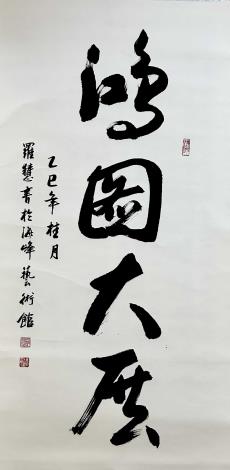 鴻圖大展
乙巳年桂月
羅慧書於海峰藝術館